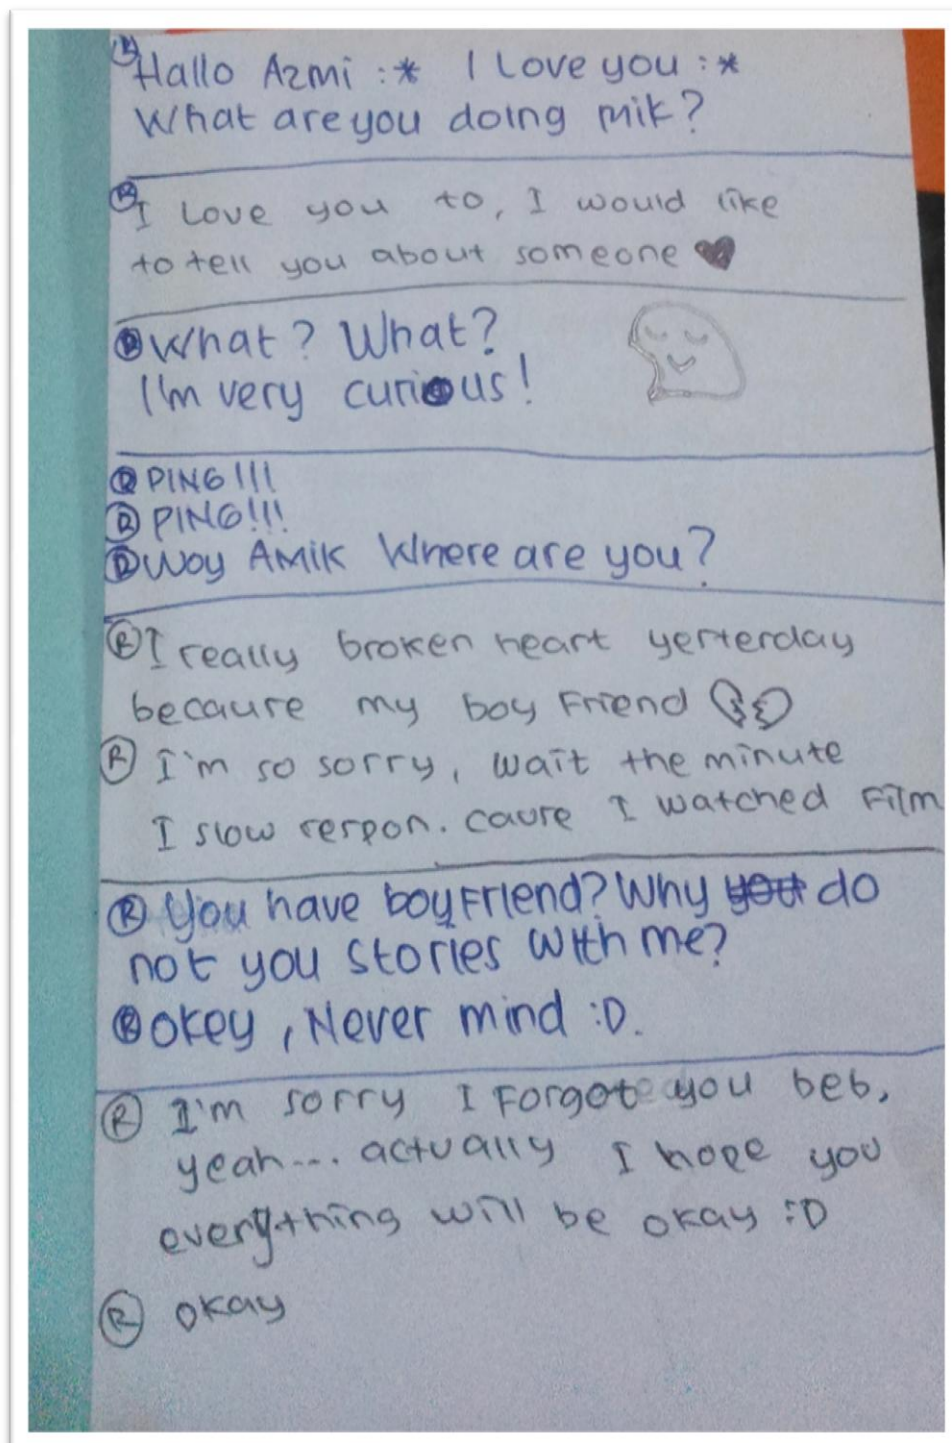 Ⓡ Hallo Azmi :* I Love you :*
What are you doing mik?
Ⓡ I Love you to, I would like
to tell you about someone ♥
Ⓡ What? What?
I'm very curious!
Ⓡ PING!!!
Ⓡ PING!!!
Ⓡ Woy AMIK Where are you?
Ⓡ I really broken heart yerterday
because my boy Friend
Ⓡ I'm so sorry, wait the minute
I slow respon. cause I watched Film
Ⓡ You have boyFriend? Why you do
not you stories with me?
Ⓡ Okey, Never mind :D.
Ⓡ I'm sorry I Forgot you beb,
yeah... actually I hope you
everything will be okay :D
Ⓡ Okay